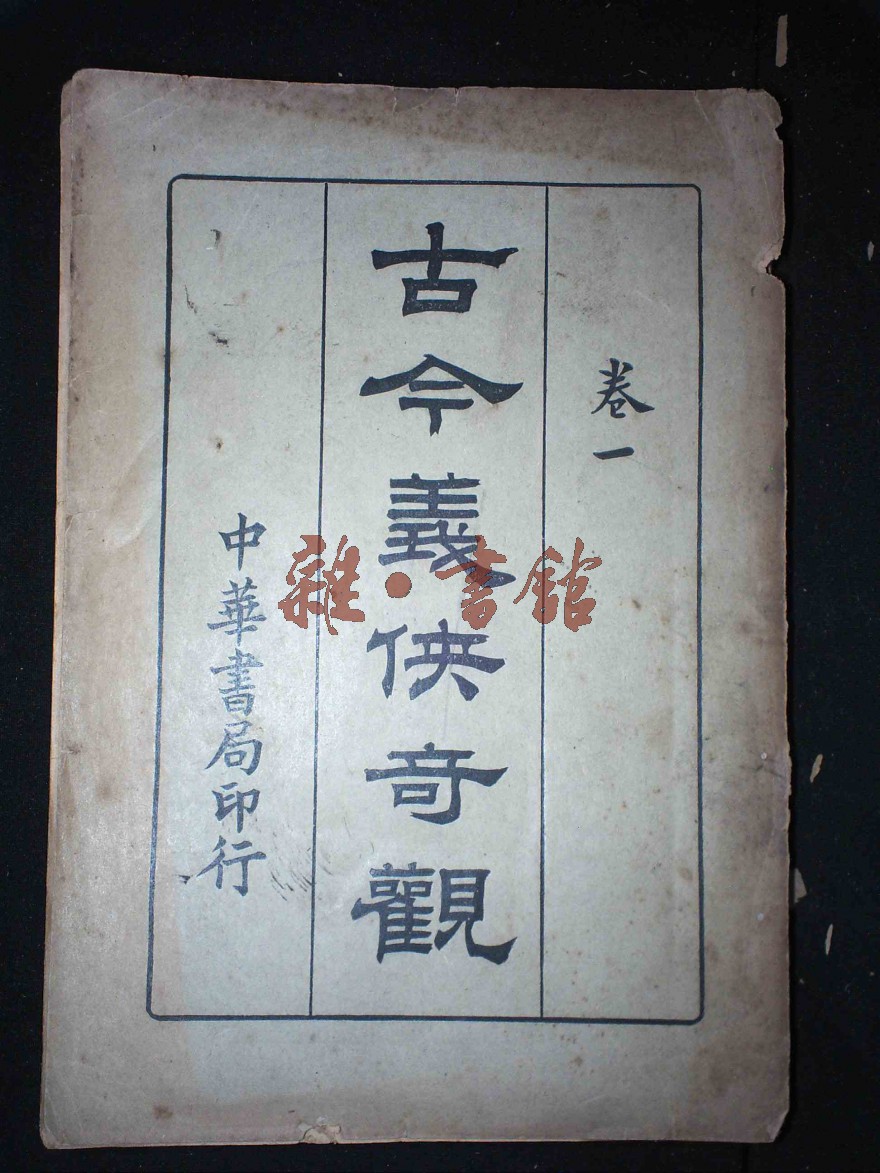 卷一
古今義俠奇觀
中華書局印行
雜·書館